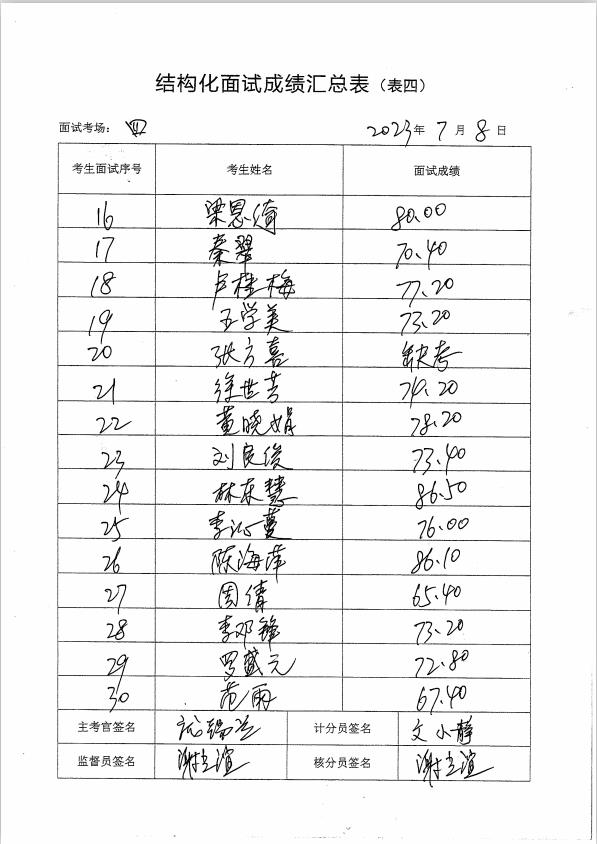 结构化面试成绩汇总表（表四）
面试考场： 四 2023年 7 月 8 日
考生面试序号 考生姓名 面试成绩
16 梁恩绮 80.00
17 秦翠 70.40
18 卢桂梅 77.20
19 王学美 73.20
20 张方喜 缺考
21 徐世芳 74.20
22 黄晓娟 78.20
23 刘良俊 73.40
24 林东慧 86.50
25 李沁蔓 76.00
26 陈海萍 86.10
27 周倩 65.40
28 李邓锋 73.20
29 罗盛元 72.80
30 范雨 67.40
主考官签名 计分员签名 文小静
监督员签名 核分员签名